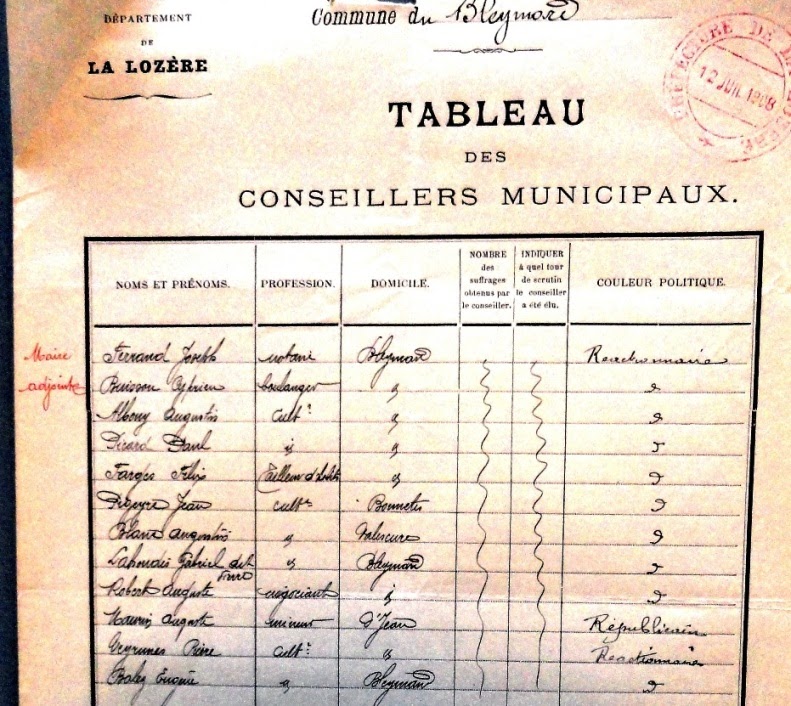 DÉPARTEMENT
DE
LA LOZÈRE
Commune du Bleymard
PRÉFECTURE DE LA LOZÈRE
12 JUIL 1908
TABLEAU
DES
CONSEILLERS MUNICIPAUX.
NOMS ET PRÉNOMS. PROFESSION. DOMICILE. NOMBRE des suffrages obtenus par le conseiller. INDIQUER à quel tour de scrutin le conseiller a été élu. COULEUR POLITIQUE.
Maire Ferrand Joseph notaire Bleymard Reactionnaire
adjoint Buisson Cyprien boulanger " "
Albouy Augustin cultr " "
Picard Paul " " "
Farges Félix Tailleur d'habits " "
Digeyre Jean cultr Bonnetès "
Blanc Augustin " Valescure "
Gabriel dit " Bleymard "
Robert Auguste négociant " "
Maurin Auguste mineur St Jean Républicain
Veyrunes Pierre cultr " Reactionnaire
Balez Eugène " Bleymard "